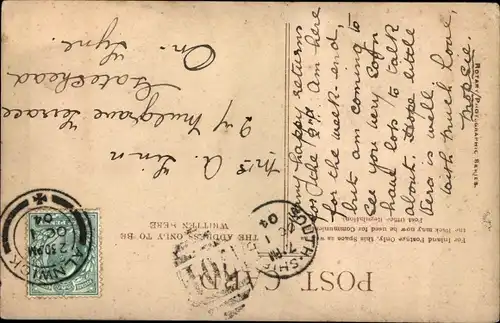 POST CARD
For Inland Postage Only this Space as well as
the Back may now be used for Communication.
Post Office Regulation.
THE ADDRESS ONLY TO BE
WRITTEN HERE
ROTARY PHOTOGRAPHIC SERIES.
Many happy returns
for Tue 2nd. Am here
for the week-end,
but am coming to
see you very soon
have lots to talk
about. Hope little
is well.
With much love,
Mrs A. Linn
24 Mulgrave Terrace
Gateshead
On-Tyne.
ALNWICK
2.30 PM
OC
04
SOUTH SHI
7 PM
OC 1
04